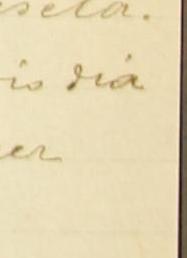 seta.
is dia
er